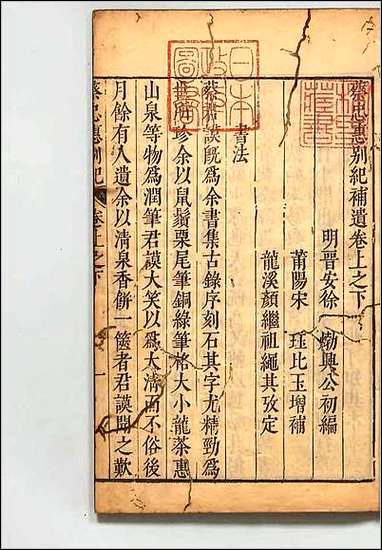 蔡忠惠別紀補遺卷上之下
明晉安徐𤊹興公初編
莆陽宋珏比玉增補
龍溪顏繼祖繩其攷定
書法
蔡君謨旣爲余書集古錄序刻石其字尤精勁爲
世所珍余以鼠鬚栗尾筆銅綠筆格大小龍茶惠
山泉等物爲潤筆君謨大笑以爲太清而不俗後
月餘有人遺余以清泉香餅一篋者君謨聞之歎
蔡忠惠別紀 卷上之下 一
日本
政府
圖書